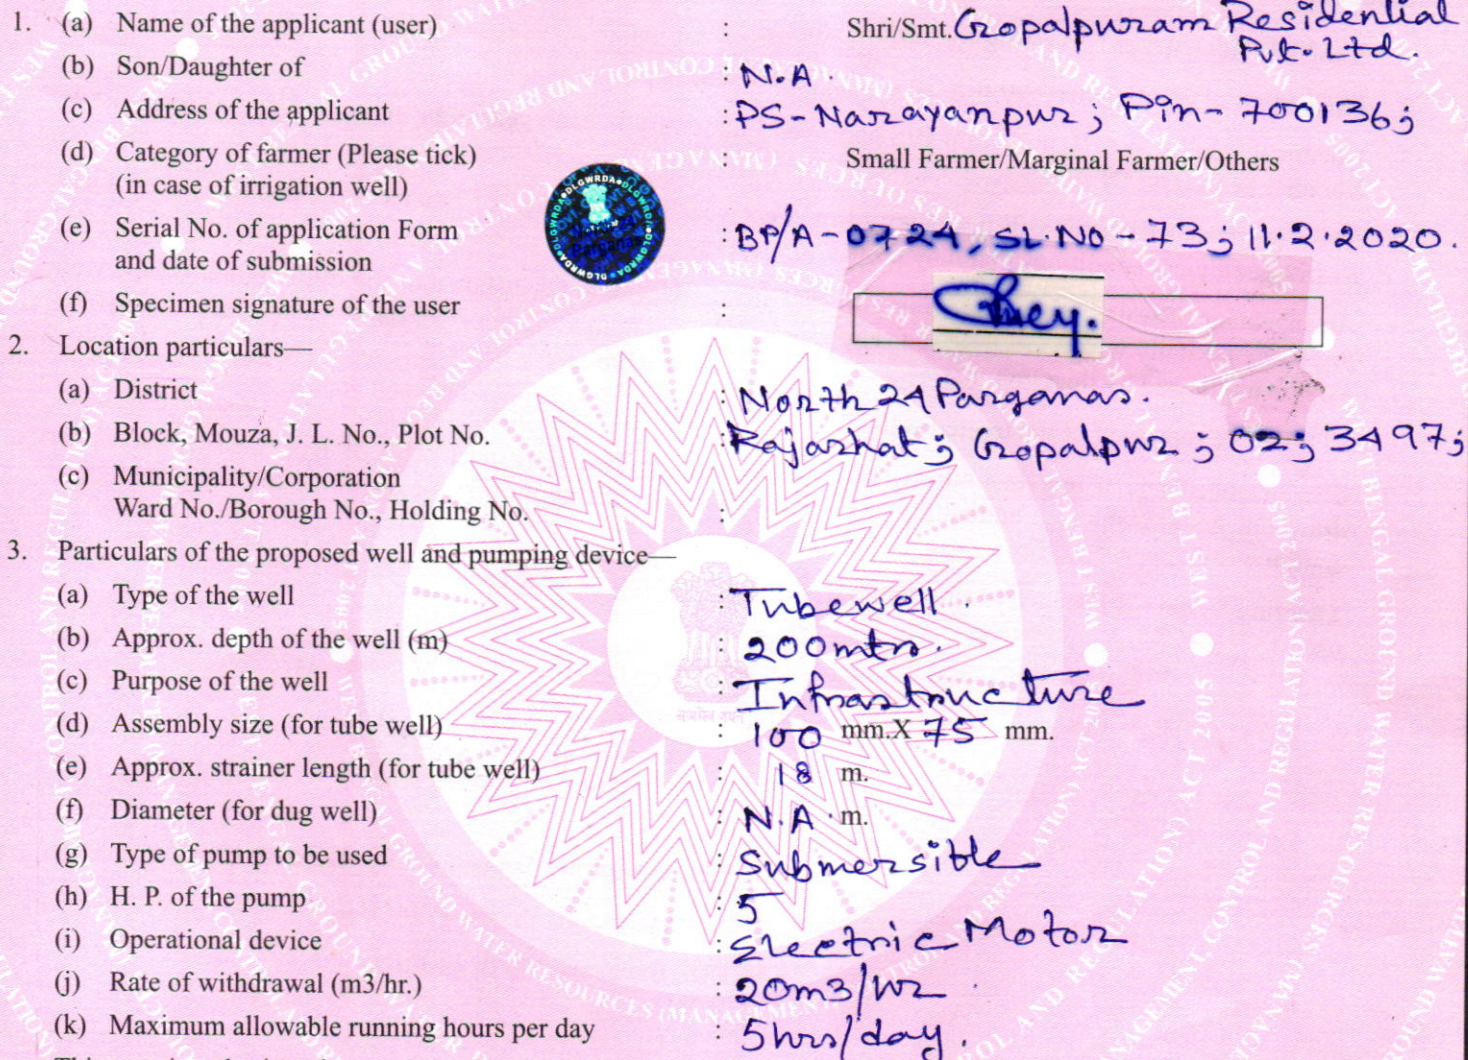 1. (a) Name of the applicant (user) : Shri/Smt. Gopalpuram Residential
Pvt. Ltd.
(b) Son/Daughter of : N.A
(c) Address of the applicant : PS-Narayanpur; Pin-700136;
(d) Category of farmer (Please tick) : Small Farmer/Marginal Farmer/Others
(in case of irrigation well)
(e) Serial No. of application Form : BP/A-0724, SL.NO-73; 11.2.2020.
and date of submission
(f) Specimen signature of the user :
2. Location particulars—
(a) District : North 24 Parganas.
(b) Block, Mouza, J. L. No., Plot No. : Rajarhat; Gopalpur; 02; 3497;
(c) Municipality/Corporation
Ward No./Borough No., Holding No. :
3. Particulars of the proposed well and pumping device—
(a) Type of the well : Tubewell.
(b) Approx. depth of the well (m) : 200mtrs.
(c) Purpose of the well : Infrastructure
(d) Assembly size (for tube well) : 100 mm.X 75 mm.
(e) Approx. strainer length (for tube well) : 18 m.
(f) Diameter (for dug well) : N.A. m.
(g) Type of pump to be used : Submersible
(h) H. P. of the pump : 5
(i) Operational device : Electric Motor
(j) Rate of withdrawal (m3/hr.) : 20m3/hr
(k) Maximum allowable running hours per day : 5hrs/day.